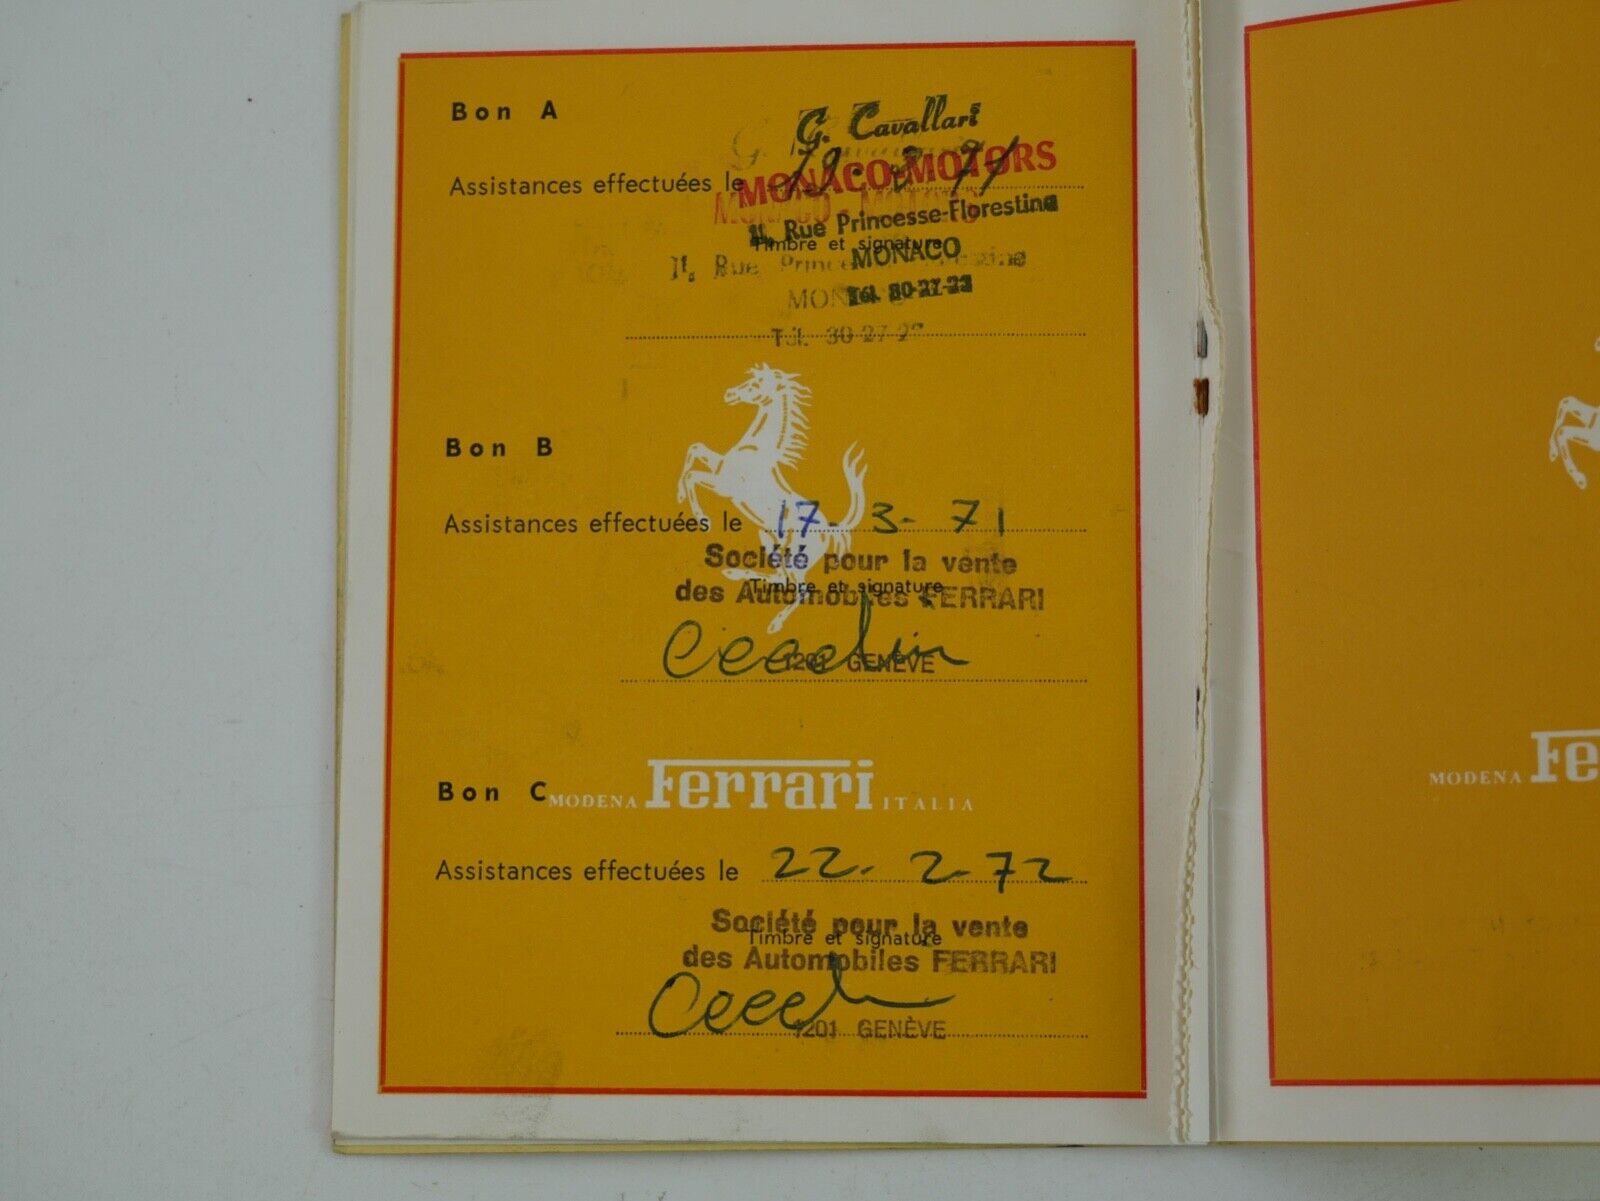 Bon A
G. Cavallari
Assistances effectuées le
MONACO-MOTORS
11, Rue Princesse-Florestine
Timbre et signature
MONACO
11, Rue
Tél. 30-27-22
Bon B
Assistances effectuées le 17-3-71
Société pour la vente
Timbre et signature
des Automobiles FERRARI
1201 GENÈVE
Bon C
MODENA Ferrari ITALIA
MODENA Fe
Assistances effectuées le 22-2-72
Société pour la vente
Timbre et signature
des Automobiles FERRARI
1201 GENÈVE